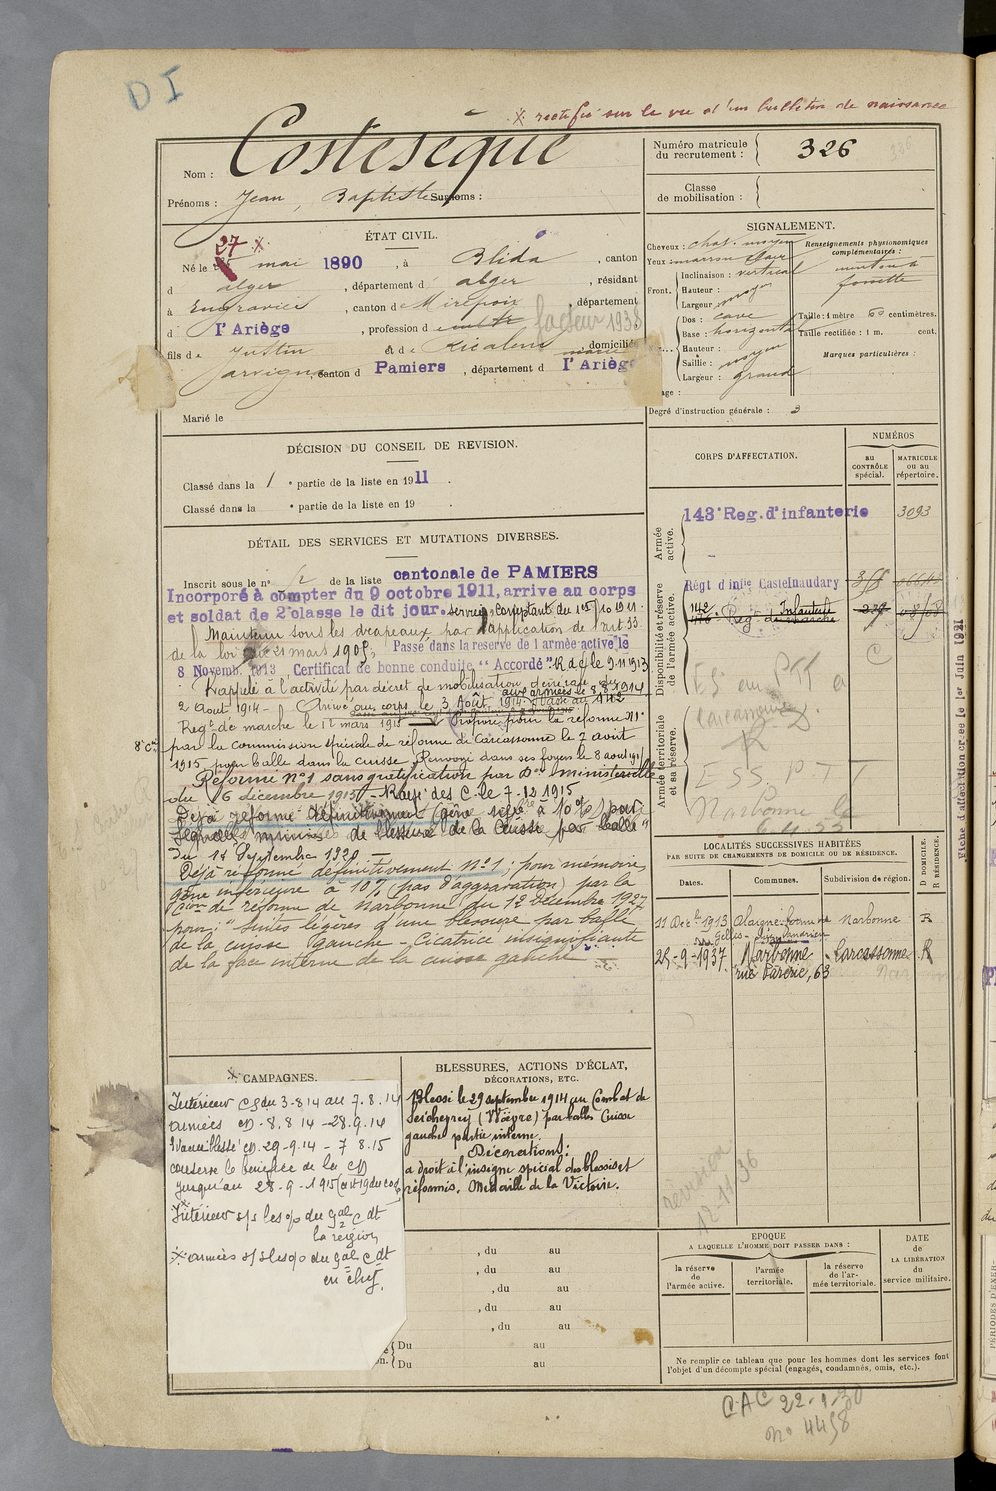 D I
X rectifié sur le vu d'un bulletin de naissance
Nom : Costesèque
Prénoms : Jean, Baptiste Surnoms :
Numéro matricule du recrutement : 326
Classe de mobilisation :
ÉTAT CIVIL.
27 X
Né le mai 1890, à Blida, canton
d alger, département d alger, résidant
à Engraviès, canton de Mirepoix, département
d l'Ariège, profession d cult facteur 1938
fils de Justin et de domicilié
à Jarvignes canton d Pamiers, département d l'Ariège
Marié le
SIGNALEMENT.
Cheveux : chat. moyen
Yeux : marron clair
Front. Inclinaison : vertical
Hauteur :
Largeur : moyen
Dos : cave
Base : horizontal
Hauteur :
Saillie : moyen
Largeur : grand
age :
Renseignements physionomiques complémentaires :
menton à fossette
Taille : 1 mètre 60 centimètres.
Taille rectifiée : 1 m. cent.
Marques particulières :
Degré d'instruction générale : 3
DÉCISION DU CONSEIL DE REVISION.
Classé dans la 1 e partie de la liste en 1911.
Classé dans la e partie de la liste en 19 .
DÉTAIL DES SERVICES ET MUTATIONS DIVERSES.
Inscrit sous le n° 12 de la liste cantonale de PAMIERS
Incorporé à compter du 9 octobre 1911, arrive au corps
et soldat de 2e classe le dit jour. Services comptant du 1er 10 1911.
Maintenu sous les drapeaux par application de l'art 33
de la loi du 21 mars 1905; Passé dans la réserve de l'armée active le
8 Novemb. 1913 Certificat de bonne conduite "Accordé". R de C le 9.11.1913
Rappelé à l'activité par décret de mobilisation générale du
2 Août 1914 - Arrivé au corps le 3 Août 1914. aux armées le 8.8.1914 Passé au 142
Regt de marche le 12 mars 1915 Proposé pour la réforme N°1
8e Cie par la commission spéciale de réforme de Carcassonne le 7 août
1915 pour balle dans la cuisse. Renvoyé dans ses foyers le 8 août 191
Réformé n°1 sans gratification par Don ministérielle
du 16 décembre 1915 - Rayé des C. le 7.12.1915
Déjà réformé définitivement (gêne infre à 10 %) pour
Séquelles minimes de blessure de la cuisse par balle"
du 18 Septembre 1920
Déjà réformé définitivement n°1; pour mémoire
gêne inférieure à 10 % (pas d'aggravation) par la
Cion de réforme de Narbonne du 12 décembre 1927
pour : "Suites légères d'une blessure par balle
de la cuisse gauche - Cicatrice insignifiante
de la face interne de la cuisse gauche"
CORPS D'AFFECTATION.
NUMÉROS
au CONTRÔLE spécial.
MATRICULE ou au répertoire.
Armée active.
143e Reg. d'infanterie 3093
Disponibilité et réserve de l'armée active.
Régt d'infie Castelnaudary 3/8
142 Reg. de marche Infanterie 239 08/08
ES au PTT a C
Carcassonne
R
Armée territoriale et sa réserve.
ESS. P T T
Narbonne le
Fiche d'affectation créée le 1er Juin 1921
LOCALITÉS SUCCESSIVES HABITÉES
PAR SUITE DE CHANGEMENTS DE DOMICILE OU DE RÉSIDENCE.
Dates. Communes. Subdivision de région. D DOMICILE. R RÉSIDENCE.
11 Dec 1913 Narbonne R
25-9-1937 Narbonne Carcassonne R
rue Parerie, 63
révision
12-11-36
X CAMPAGNES.
Intérieur CS du 3-8 14 au 7.8.14
armées CD - 8.8 14 - 28.9.14
Evacué blessé CD. 29-9.14 - 7 8.15
conserve le bénéfice de la CD
jusqu'au 28-9-1915
X Intérieur s/s les o/o du Gal Cdt
la 2e région
X armées s/s les o/o du Gal Cdt
en chef.
BLESSURES, ACTIONS D'ÉCLAT,
DÉCORATIONS, ETC.
Blessé le 29 septembre 1914 au Combat de
Seicheprey (Woëvre) par balle Cuisse
gauche partie interne.
Décorations :
a droit à l'insigne spécial des blessés et
réformés. Médaille de la Victoire.
, du au
, du au
, du au
, du au
, du au
Du au
Du au
EPOQUE
A LAQUELLE L'HOMME DOIT PASSER DANS :
la réserve de l'armée active.
l'armée territoriale.
la réserve de l'armée territoriale.
DATE de LA LIBÉRATION du service militaire.
Ne remplir ce tableau que pour les hommes dont les services font
l'objet d'un décompte spécial (engagés, condamnés, omis, etc.).
CAC 22.1.30
n° 4458